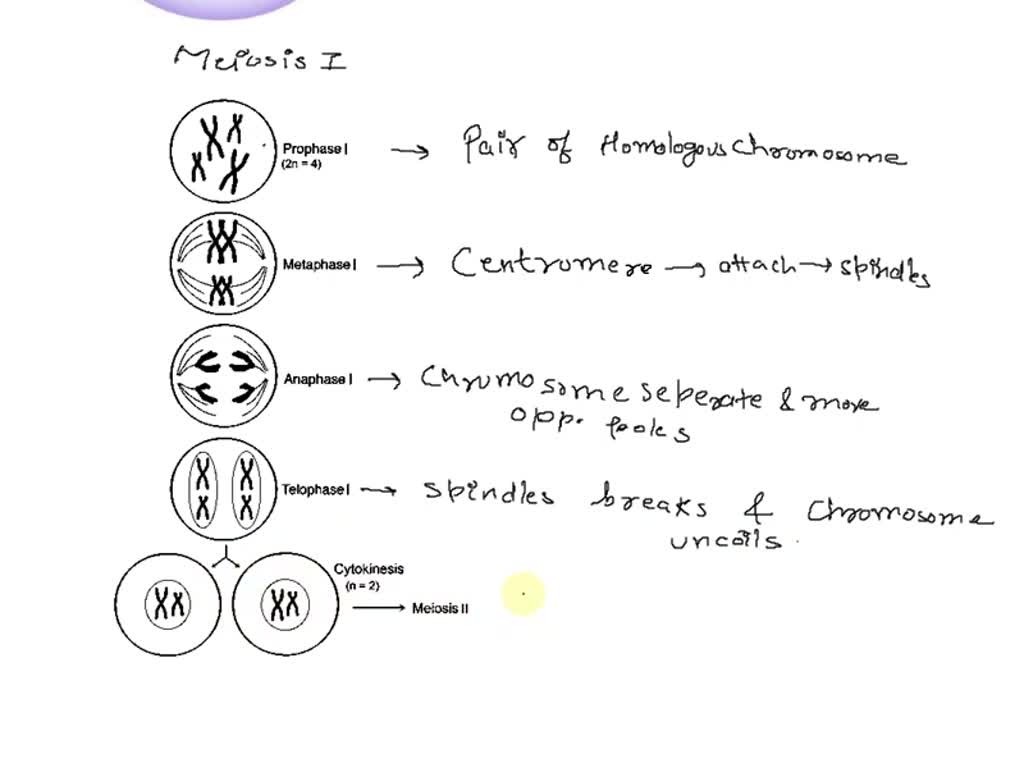 Meiosis I
Prophase I → Pair of Homologous chromosome
(2n = 4)
Metaphase I → Centromere → attach → spindles
Anaphase I → Chrumosome seperate & move
opp. pooles
Telophase I → spindles breaks & Chromosome
uncoils.
Cytokinesis
(n = 2)
→ Meiosis II